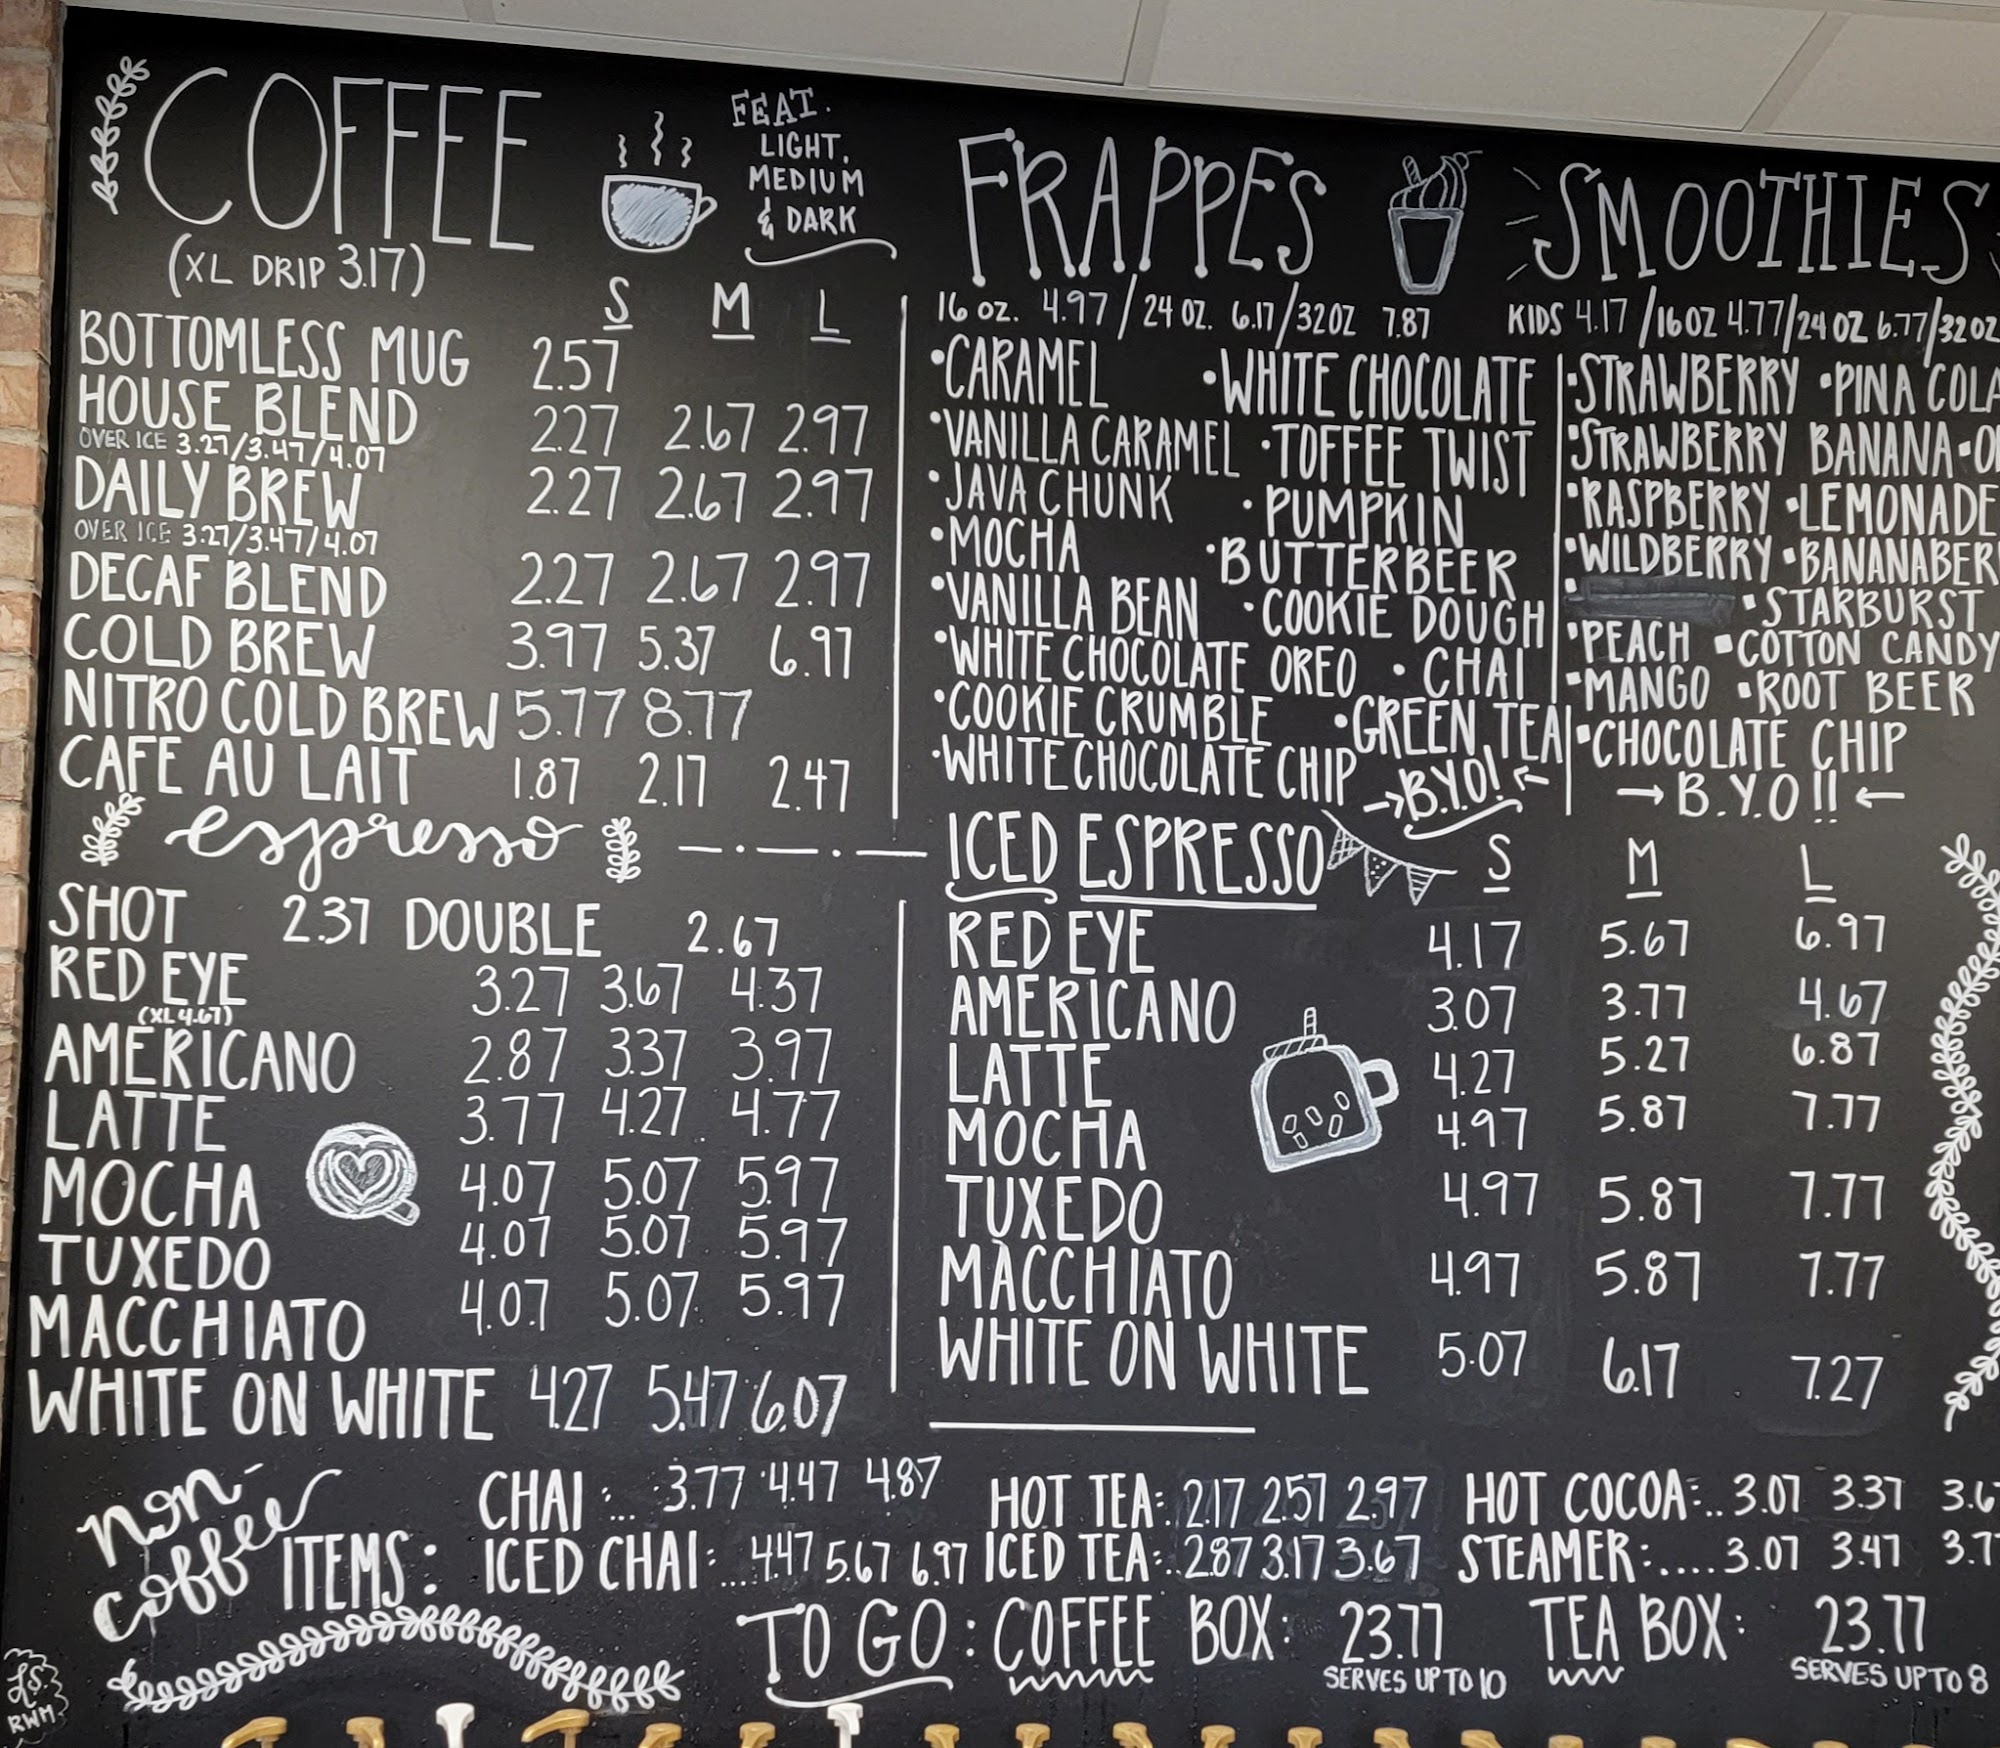 COFFEE
(XL DRIP 3.17)
FEAT.
LIGHT,
MEDIUM
& DARK
S M L
BOTTOMLESS MUG 2.57
HOUSE BLEND 2.27 2.67 2.97
OVER ICE 3.27/3.47/4.07
DAILY BREW 2.27 2.67 2.97
OVER ICE 3.27/3.47/4.07
DECAF BLEND 2.27 2.67 2.97
COLD BREW 3.97 5.37 6.97
NITRO COLD BREW 5.77 8.77
CAFE AU LAIT 1.87 2.17 2.47
espresso
SHOT 2.37 DOUBLE 2.67
RED EYE 3.27 3.67 4.37
(XL 4.67)
AMERICANO 2.87 3.37 3.97
LATTE 3.77 4.27 4.77
MOCHA 4.07 5.07 5.97
TUXEDO 4.07 5.07 5.97
MACCHIATO 4.07 5.07 5.97
WHITE ON WHITE 4.27 5.47 6.07
FRAPPES
16 OZ. 4.97/24 OZ. 6.17/32OZ 7.87
•CARAMEL •WHITE CHOCOLATE
•VANILLA CARAMEL •TOFFEE TWIST
•JAVA CHUNK •PUMPKIN
•MOCHA •BUTTERBEER
•VANILLA BEAN •COOKIE DOUGH
•WHITE CHOCOLATE OREO •CHAI
•COOKIE CRUMBLE •GREEN TEA
•WHITE CHOCOLATE CHIP →B.Y.O!←
SMOOTHIES
KIDS 4.17/16OZ 4.77/24 OZ 6.77/32OZ
•STRAWBERRY •PINA COLA
•STRAWBERRY BANANA •
•RASPBERRY •LEMONADE
•WILDBERRY •BANANABER
• •STARBURST
•PEACH •COTTON CANDY
•MANGO •ROOT BEER
•CHOCOLATE CHIP
→ B.Y.O!! ←
ICED ESPRESSO S M L
RED EYE 4.17 5.67 6.97
AMERICANO 3.07 3.77 4.67
LATTE 4.27 5.27 6.87
MOCHA 4.97 5.87 7.77
TUXEDO 4.97 5.87 7.77
MACCHIATO 4.97 5.87 7.77
WHITE ON WHITE 5.07 6.17 7.27
non-
coffee ITEMS:
CHAI:... 3.77 4.47 4.87
ICED CHAI:.... 4.47 5.67 6.97
HOT TEA: 2.17 2.57 2.97
ICED TEA: 2.87 3.17 3.67
HOT COCOA:.. 3.07 3.37 3.6
STEAMER:.... 3.07 3.47 3.7
TO GO: COFFEE BOX: 23.77 TEA BOX: 23.77
SERVES UP TO 10 SERVES UP TO 8
L.S.
RWM